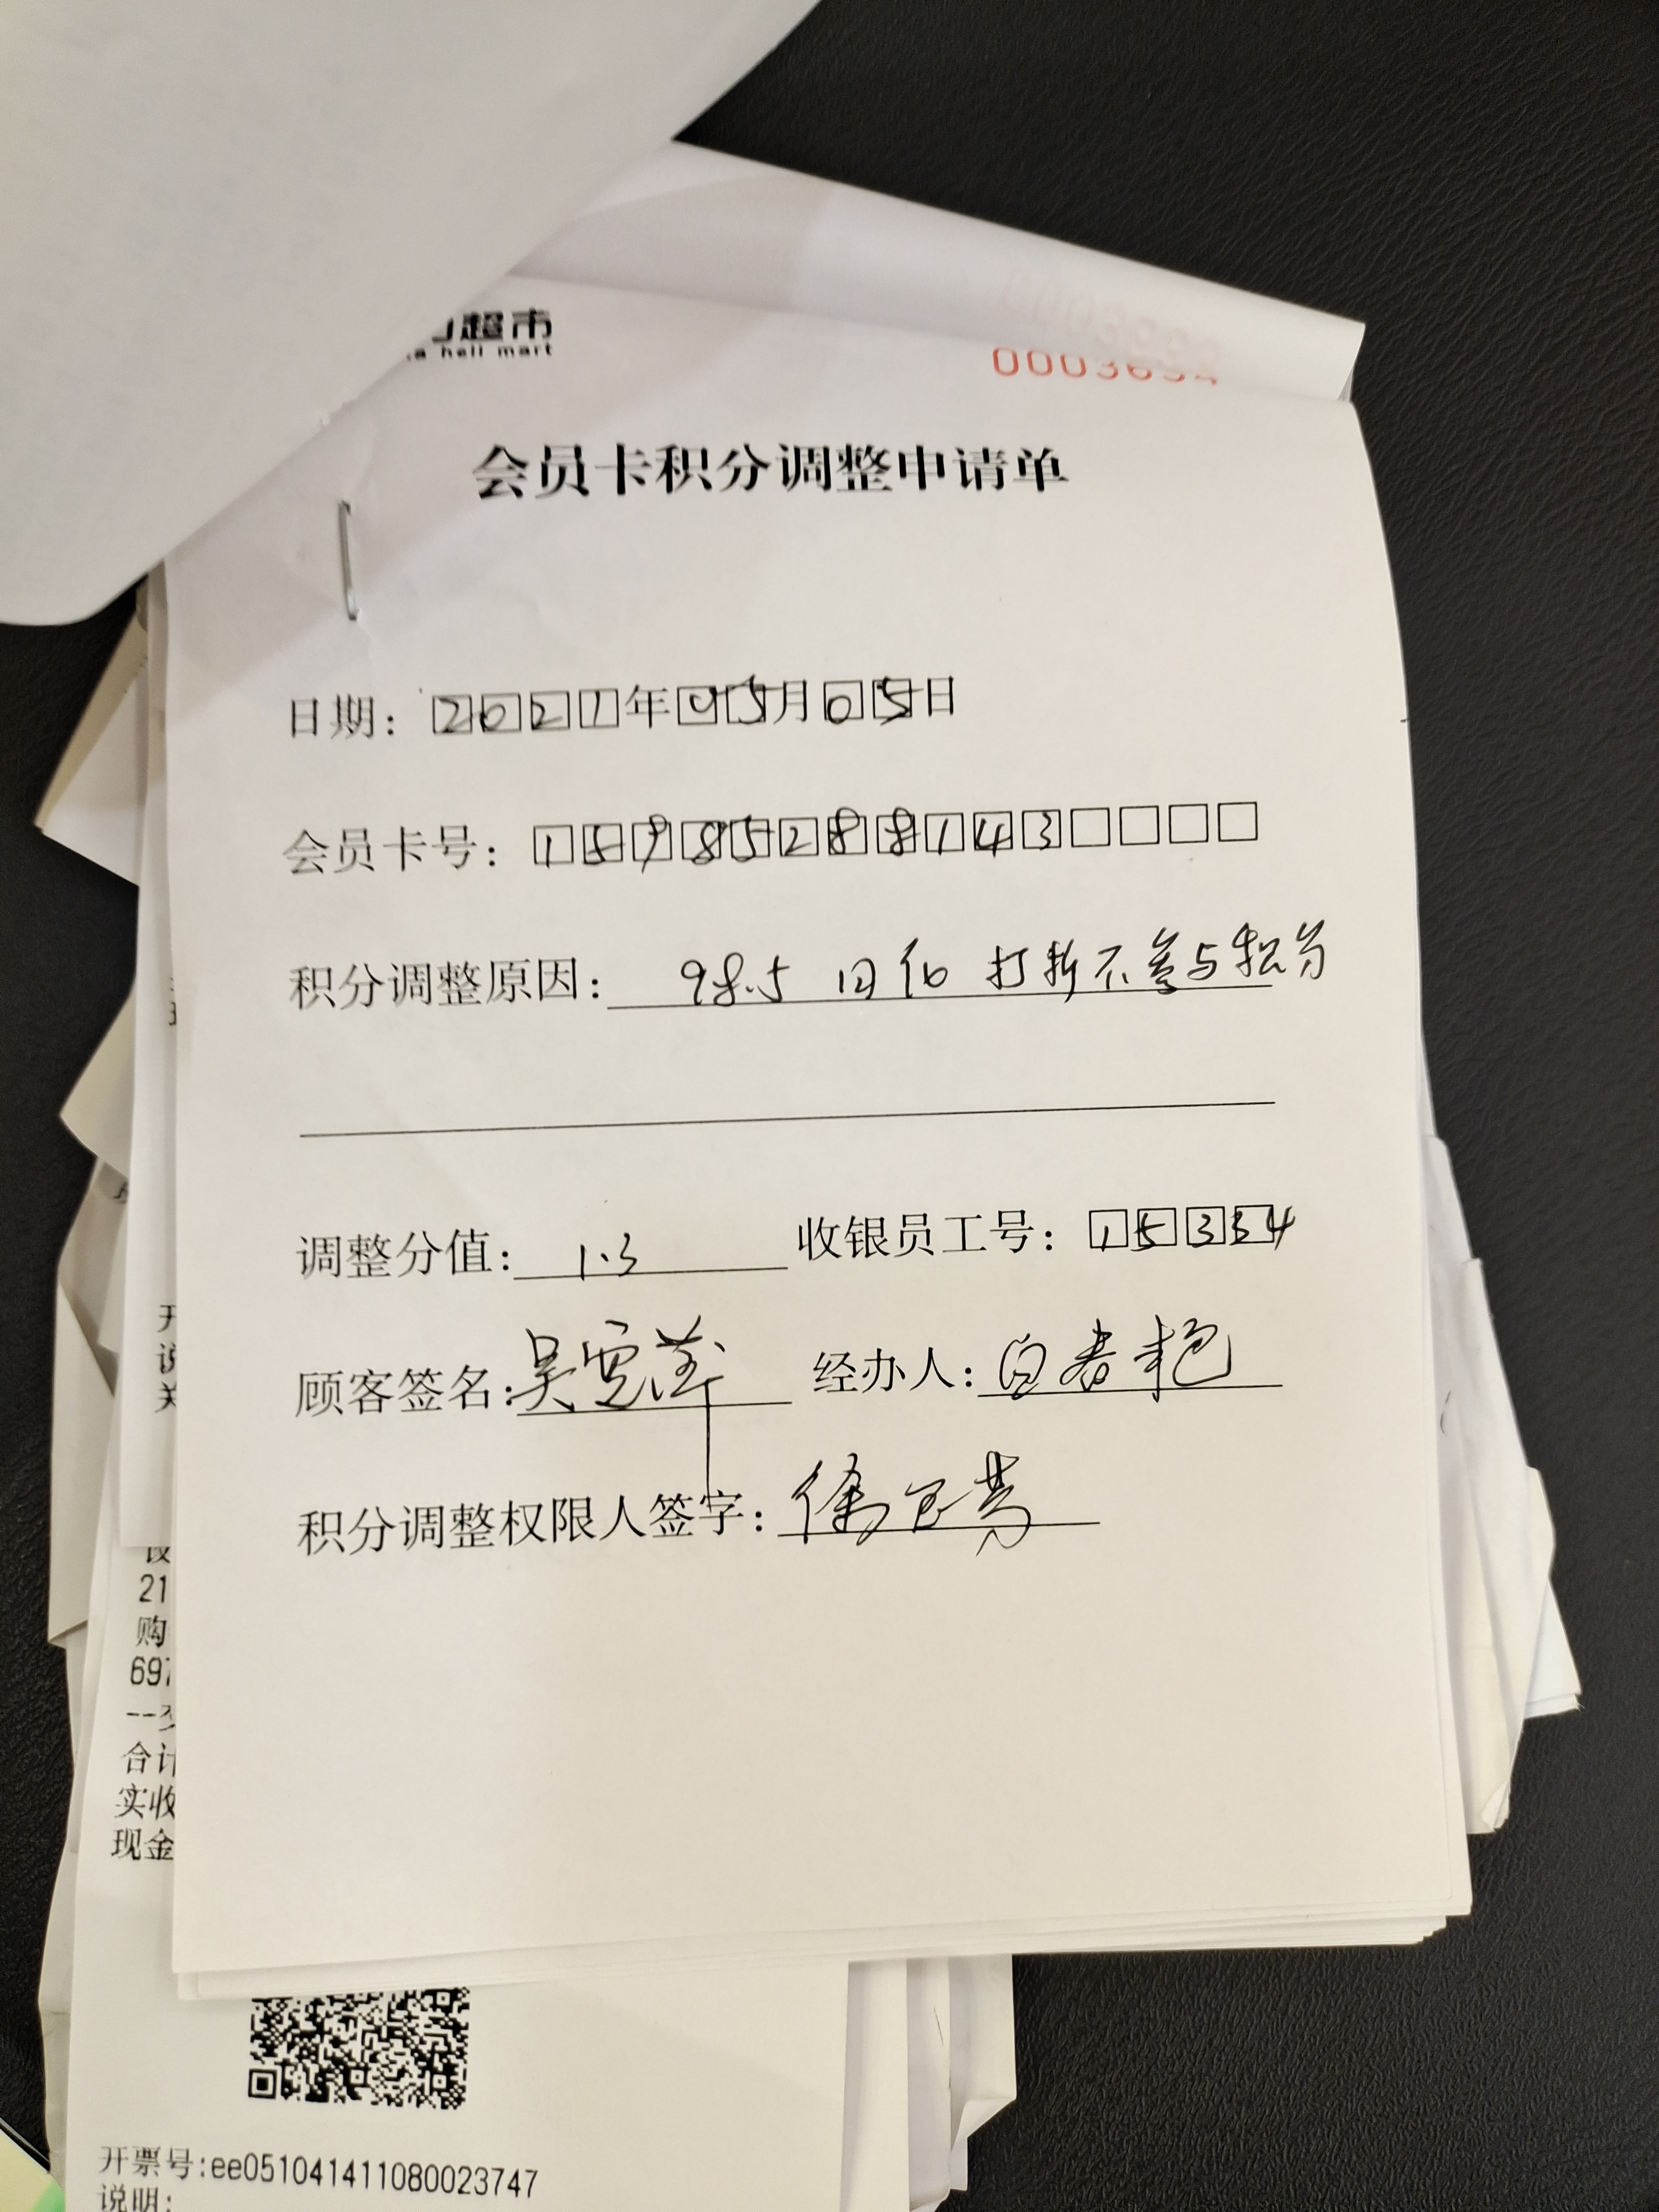 超市
a hell mart
0003694
会员卡积分调整申请单
日期：2021年05月05日
会员卡号：15985288143
积分调整原因：98.5 旧伦 打折不参与积分
调整分值：1.3 收银员工号：15334
顾客签名：吴 萍 经办人：白春艳
积分调整权限人签字：徐玉芳
开
说
关
21
购
697
合计
实收
现金
开票号:ee051041411080023747
说明: